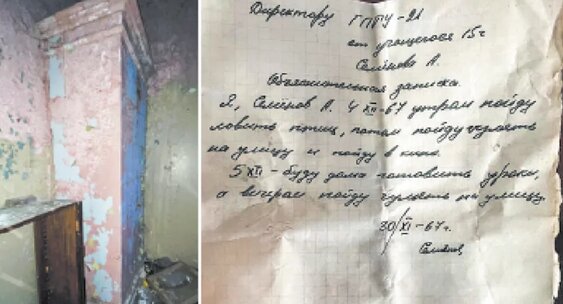 Директору ГПТУ-21
от учащегося 15г
Семёнова А.
Объяснительная записка.
Я, Семёнов А. 4 XII-67 утром пойду
ловить птиц, потом пойду гулять
на улицу и пойду в кино.
5 XII - буду дома готовить уроки,
а вечером пойду гулять на улицу.
30/XI-67г.
Семёнов